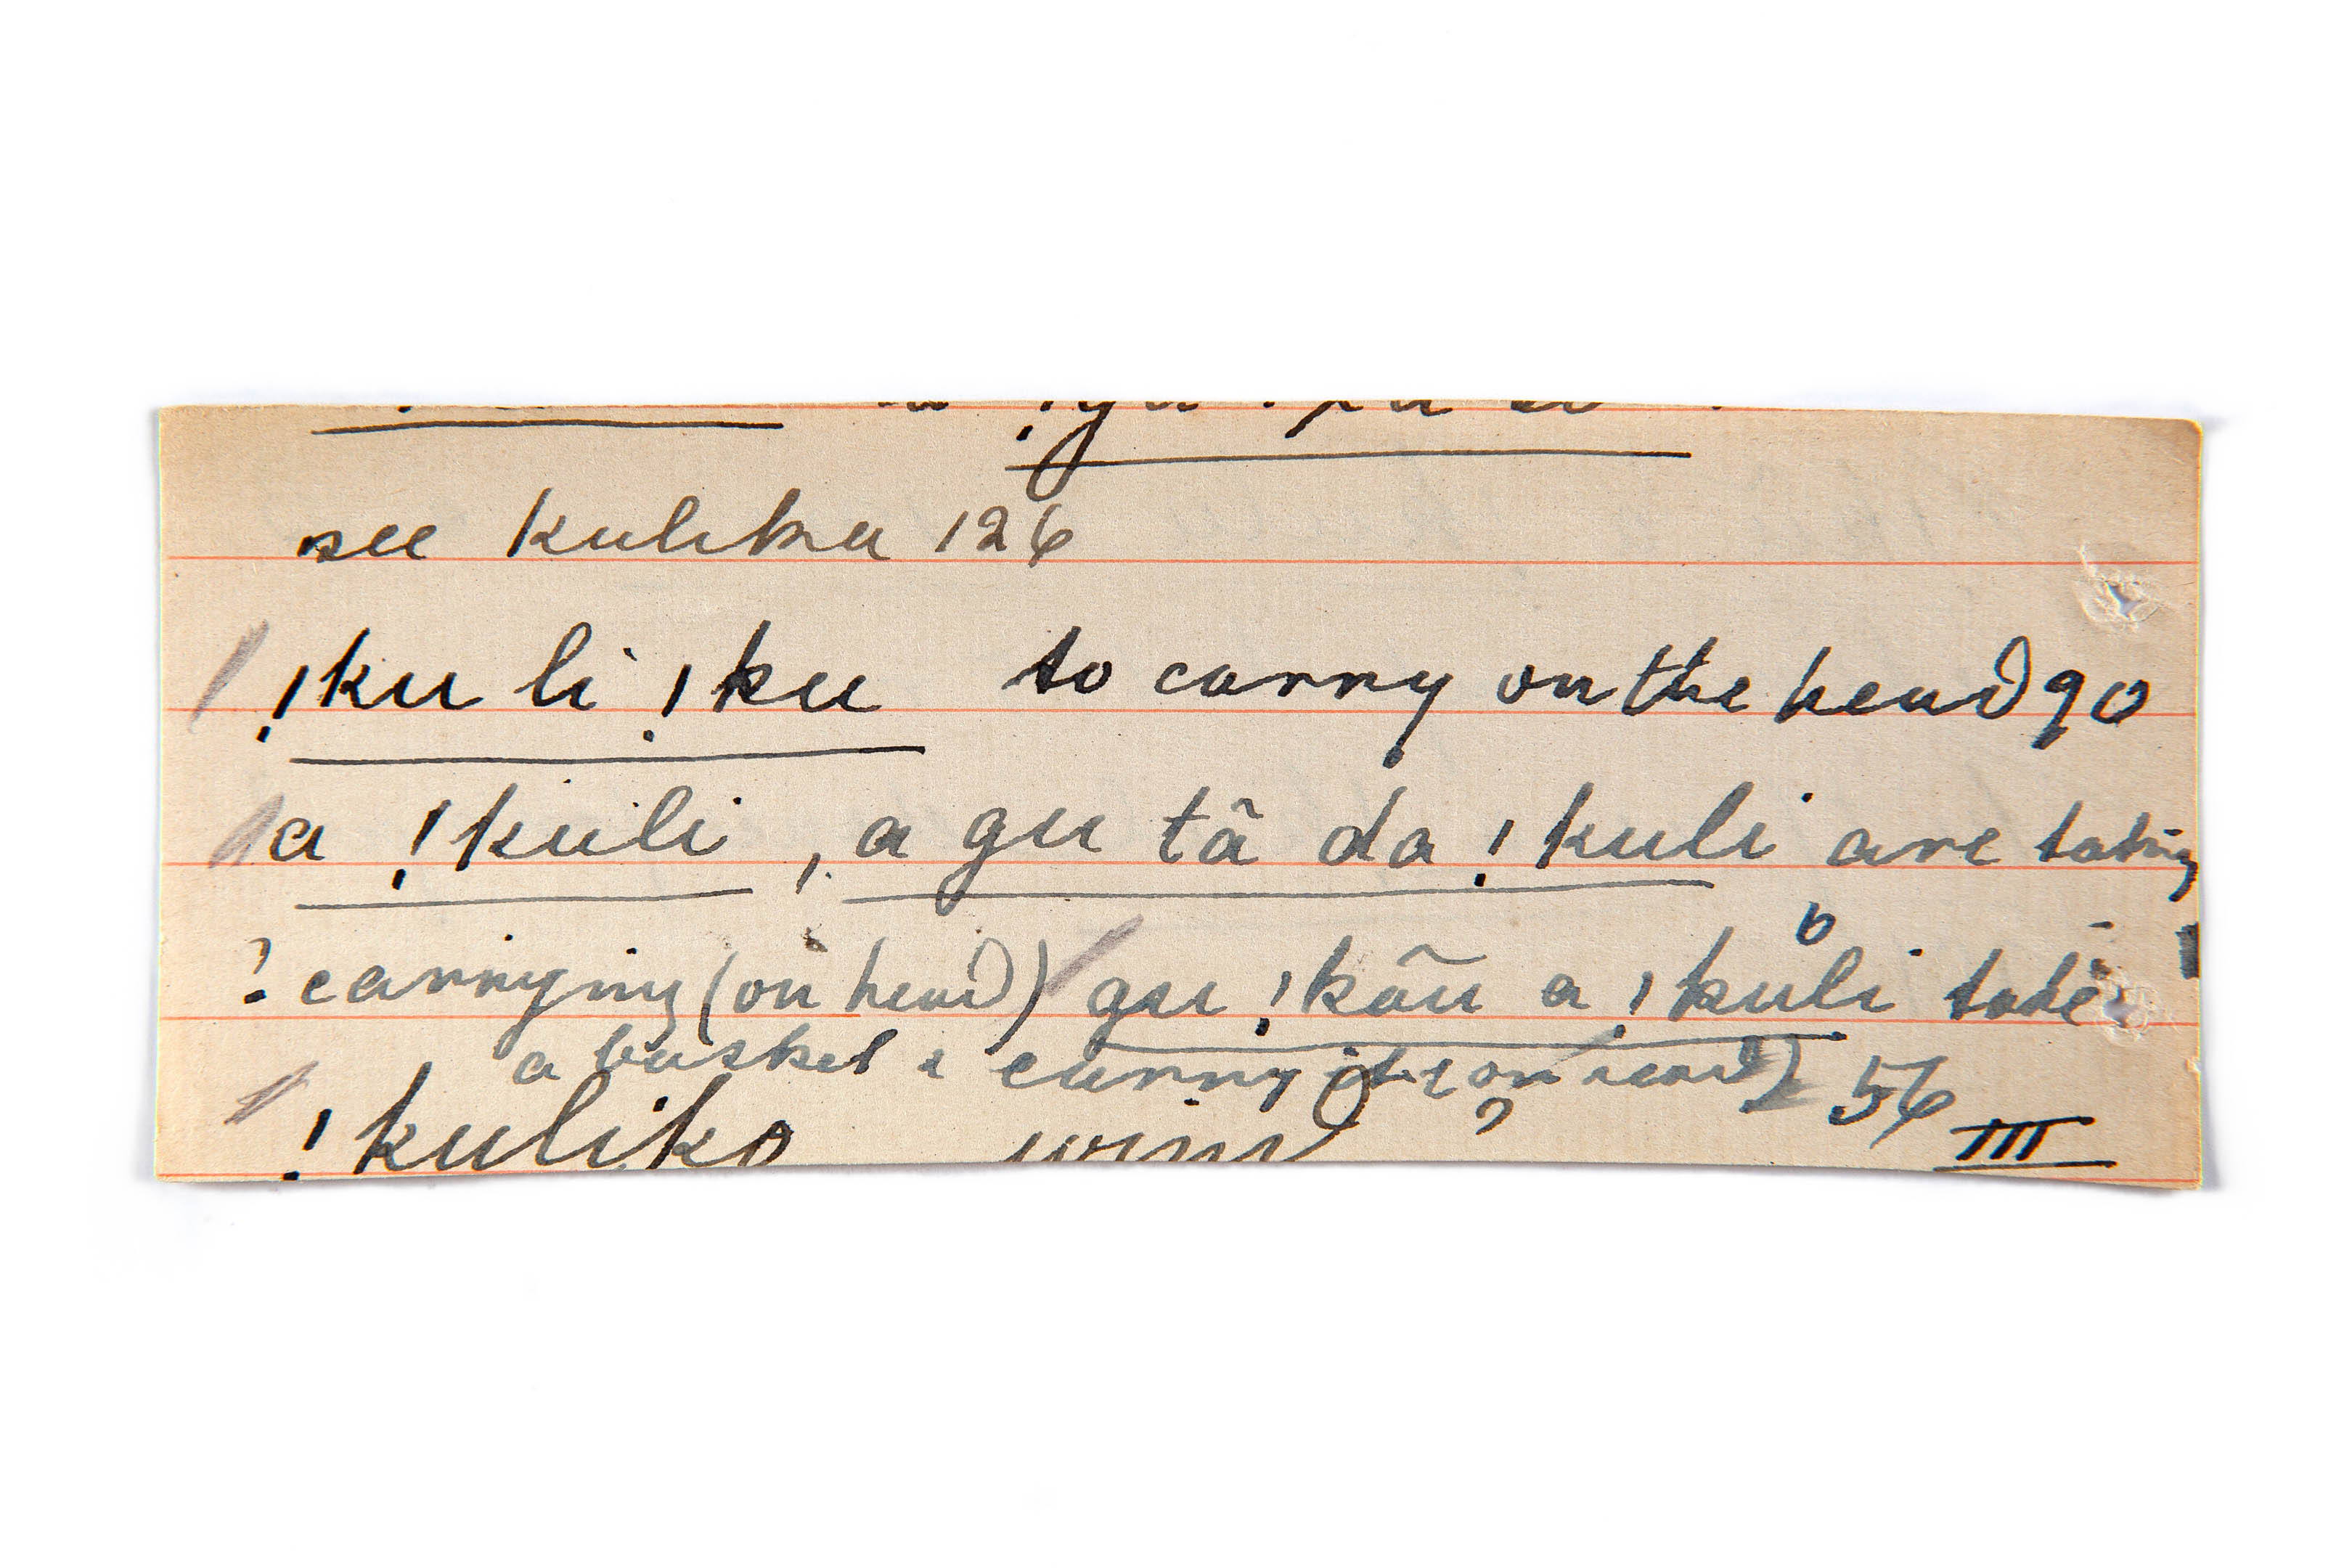 see kulika 126
!ku li !ku to carry on the head 90
a !kuli, a gu tã da !kuli are taking
? carrying (on head) gu !kãu a !kuli take
a basket & carry it (on head) 56 III
!kuliko wind ?